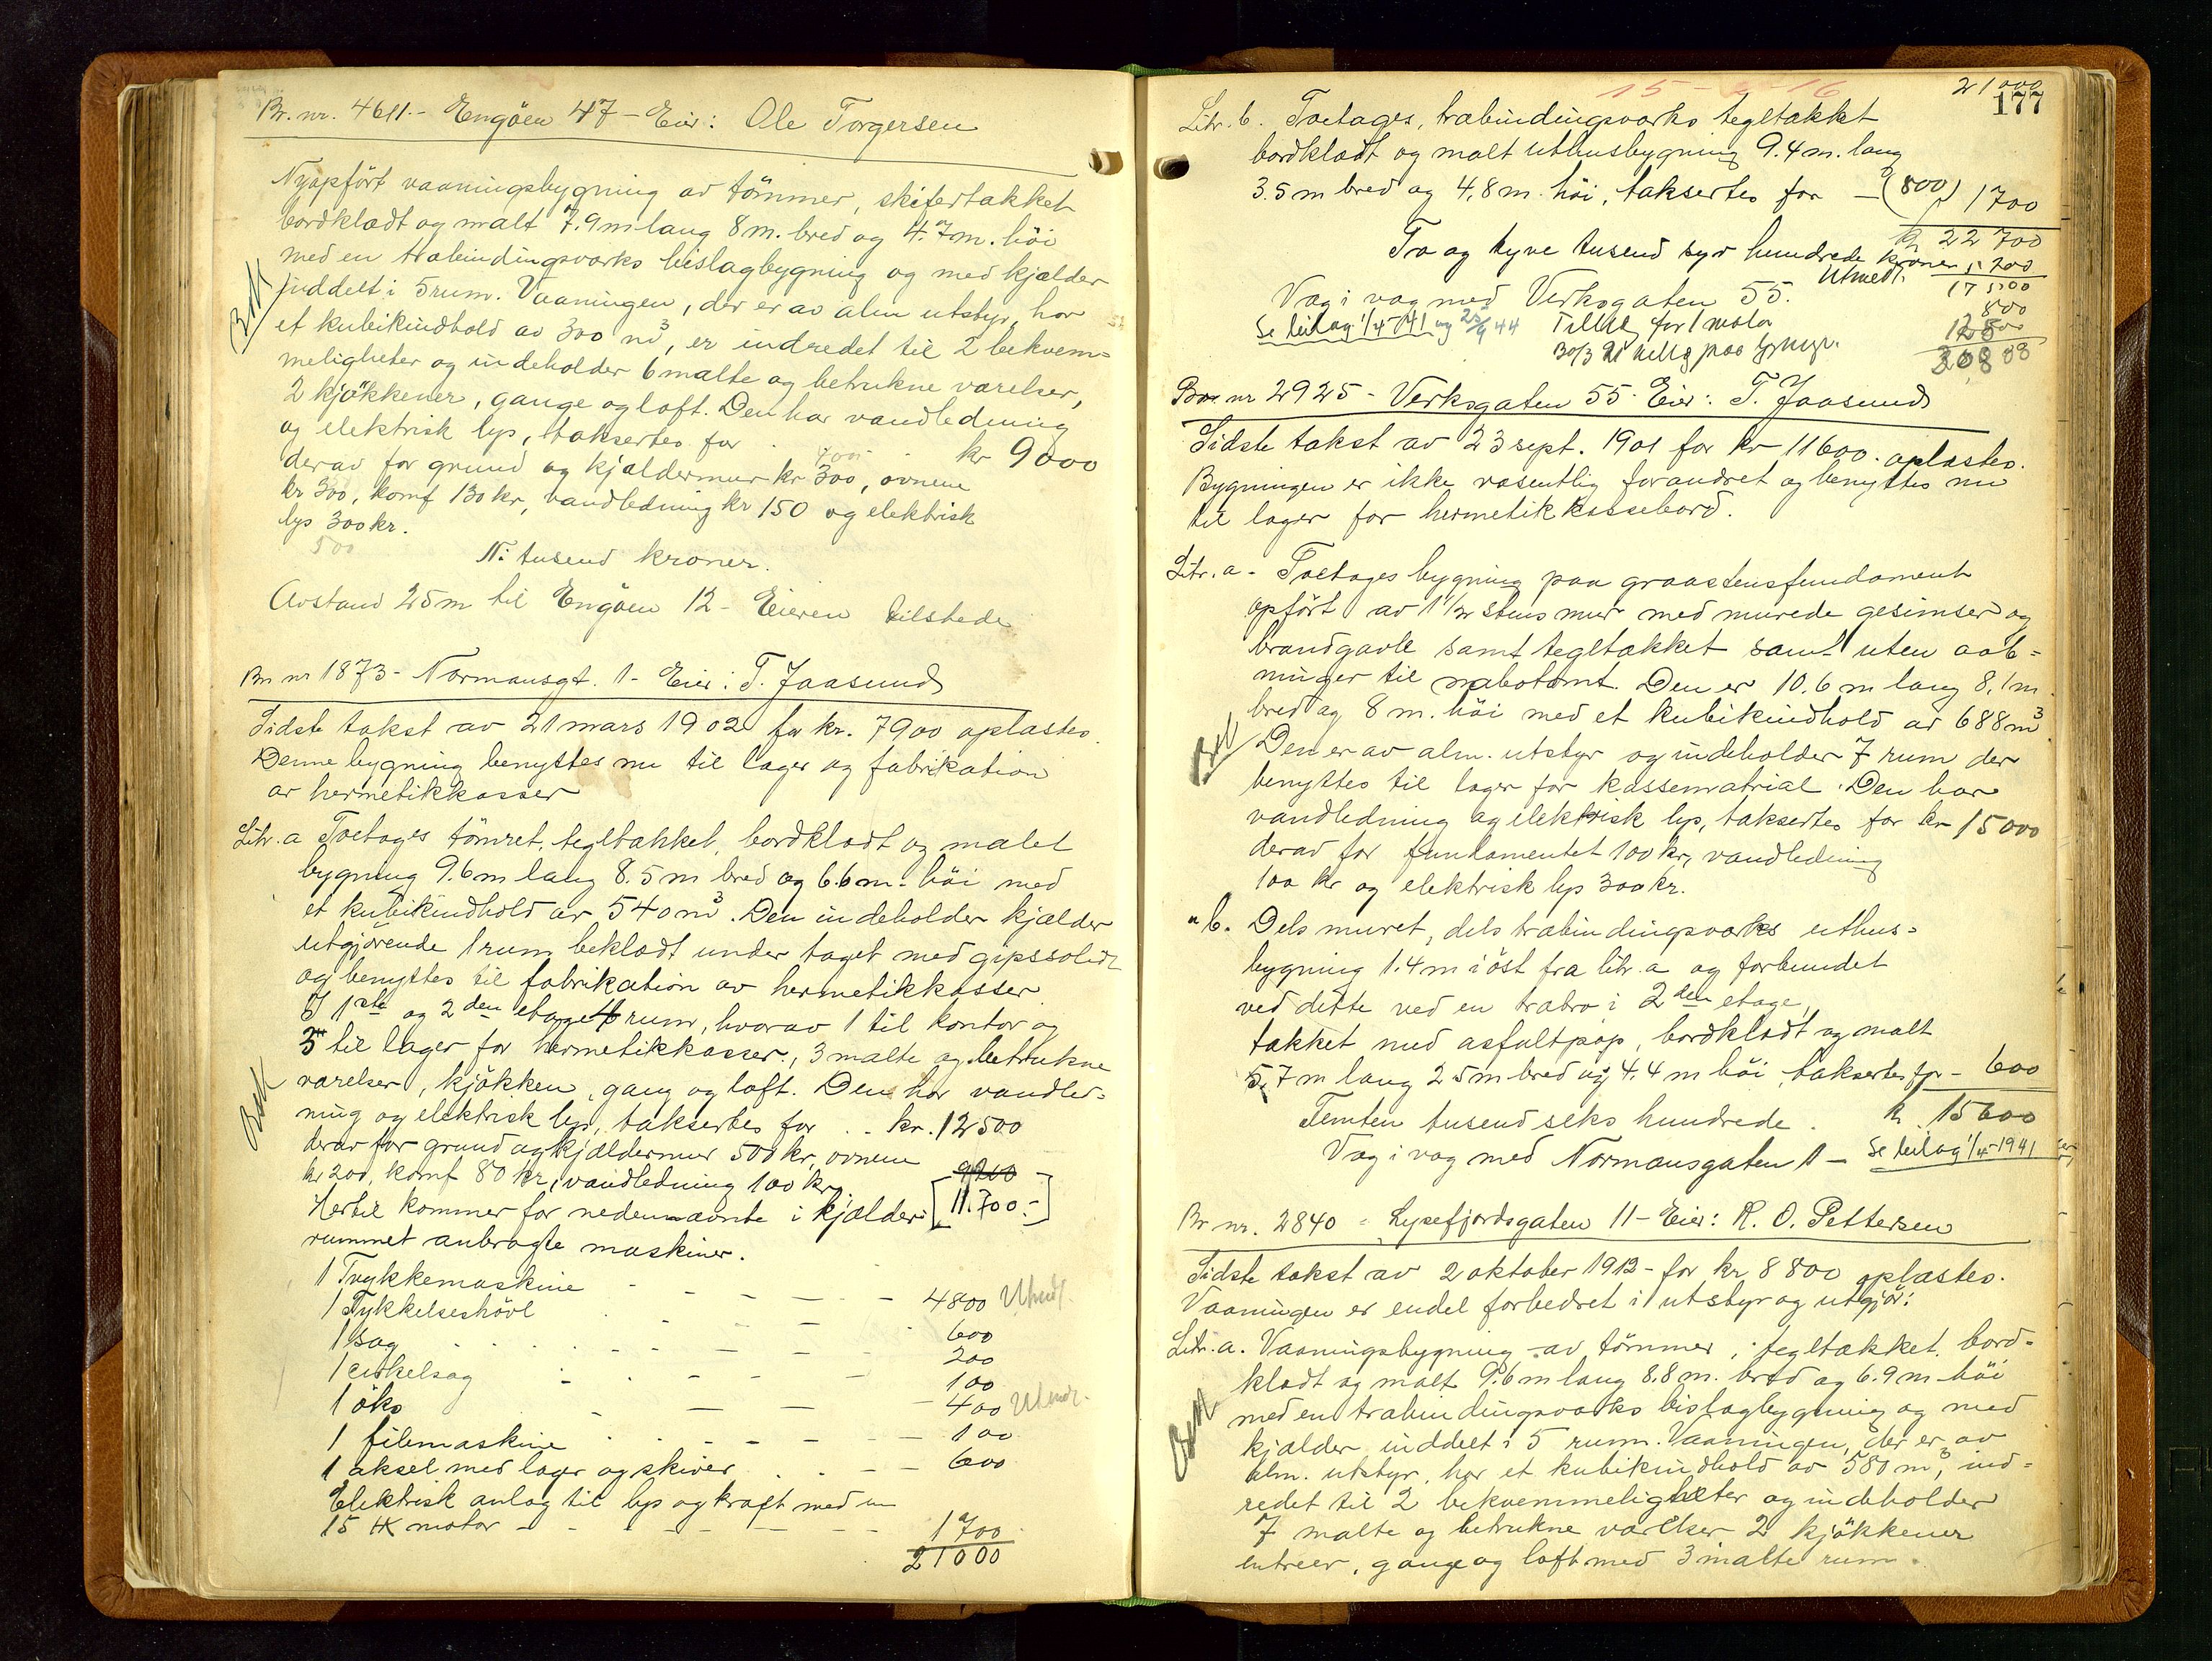 Br. nr. 4611 - Engöen 47 - Eier: Ole Torgersen
Nyopfört vaaningsbygning av tömmer, skifertækket
bordklædt og malt 7.9 m lang 8 m. bred og 4.7 m. höi
med en træbindingsverks bislagbygning og med kjælder
inddelt i 5 rum. Vaaningen, der er av alm utstyr, har
et kubikindhold av 300 m³, er indredet til 2 bekvem=
meligheter og indeholder 6 malte og betrukne værelser,
2 kjökkener, gange og loft. Den har vandledning
og elektrisk lys, taksertes for kr 9000
derav for grund og kjældermur kr 300, ovnene
kr 300, komf 130 kr, vandledning kr 150 og elektrisk
lys 300 kr.
500
Ni tusend kroner.
Avstand 25 m til Engöen 12 - Eieren tilstede
Br. nr 1873 - Normansgt. 1 - Eier: T. Jaasund
Sidste takst av 21 mars 1902 for kr. 7900 oplæstes.
Denne bygning benyttes nu til lager og fabrikation
av hermetikkasser
Litr. a Toetages tömret, tegltækket, bordklædt og malet
bygning 9.6 m lang 8.5 m bred og 6.6 m. höi med
et kubikindhold av 540 m³. Den indeholder kjælder
utgjörende 1 rum beklædt under taget med gipssolid
og benyttes til fabrikation av hermetikkasser
I 1ste og 2den etage 4 rum, hvorav 1 til kontor og
3 til lager for hermetikkasser, 3 malte og betrukne
værelser, kjökken, gang og loft. Den har vandled=
ning og elektrisk lys, taksertes for - kr. 12500
derav for grund og kjældermur 500 kr, ovnene
kr 200, komf 80 kr, vandledning 100 kr. 9200
Hertil kommer for nedennævnte i kjælder= [11.700.-]
rummet anbragte maskiner.
1 Trykkemaskine - - - - 4800 Utmeldt
1 Tykkelseshövl - - - 600
1 sag - - - - 200
1 cirkelsag - - - - 100
1 öks - - - - 400
1 filemaskine - - - - 100
1 aksel med lager og skiver - - 600
Elektrisk anlæg til lys og kraft med en
15 HK motor - - - - - 1700
21000
21000
177
Litr. b. Toetages, træbindingsverks tegltækket
bordklædt og malt uthusbygning 9.4 m. lang
3.5 m bred og 4,8 m. höi, taksertes for - (800) 1700
kr 22700
To og tyve tusend syv hundrede kroner 5 200
Utmeldt. 17500
Væg i væg med Verksgaten 55. 800
Se bilag 1/4-41 og 25/9 44 Tillæg for 1 motor
Br. nr 2925 - Verksgaten 55 - Eier: T. Jaasund
Sidste takst av 23 sept. 1901 for kr 11600. oplæstes.
Bygningen er ikke væsentlig forandret og benyttes nu
til lager for hermetikkassebord.
Litr. a - Toetages bygning paa graastensfundament
opfört av 1 1/2 stens mur med murede gesimser og
brandgavle samt tegltækket samt uten aab=
ninger til nabotomt. Den er 10.6 m lang 8,1 m
bred og 8 m. höi med et kubikindhold av 688 m³.
Den er av alm. utstyr og indeholder 7 rum der
benyttes til lager for kassematrial. Den har
vandledning og elektrisk lys, taksertes for kr 15000
derav for fundamentet 100 kr, vandledning
100 kr og elektrisk lys 300 kr.
" b. Dels muret, dels træbindingsverks uthus=
bygning 1.4 m i öst fra litr. a og forbundet
ved dette ved en træbro i 2den etage,
tækket med asfaltpap, bordklædt og malt
5,7 m lang 2.5 m bred og 4.4 m höi, taksertes for - 600
Femten tusend seks hundrede. kr 15600
Væg i væg med Normansgaten 1 - Se bilag 1/4-1941
Br. nr. 2840 - Lysefjordsgaten 11 - Eier: R. O. Pettersen
Sidste takst av 2 oktober 1912 - for kr 8800 oplæstes.
Vaaningen er endel forbedret i utstyr og utgjör:
Litr. a. Vaaningsbygning av tömmer, tegltækket, bord=
klædt og malt 9.6 m lang 8.8 m. bred og 6.9 m höi
med en træbindingsverks bislagbygning og med
kjælder inddelt i 5 rum. Vaaningen, der er av
alm. utstyr, har et kubikindhold av 580 m³, ind=
redet til 2 bekvemmeligheter og indeholder
7 malte og betrukne værelser 2 kjökkener
entreer, gange og loft med 3 malte rum.